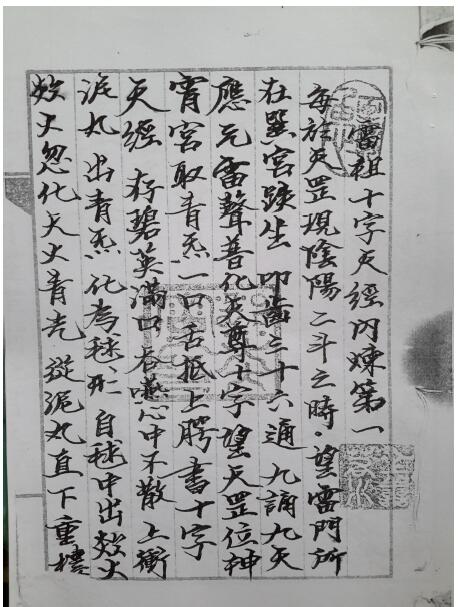 雷祖十字天經內煉第一
每於天罡現陰陽二斗之時。望雷門所
在巽宮趺坐叩齒三十六通九誦九天
應元雷聲普化天尊十字望天罡位神
霄宮取青炁一口舌抵上腭書十字
天經存碧英滿口吞嚥心中不散上衝
泥丸出青炁化為毬形自毬中出火
火忽化天火青光從泥丸直下重樓